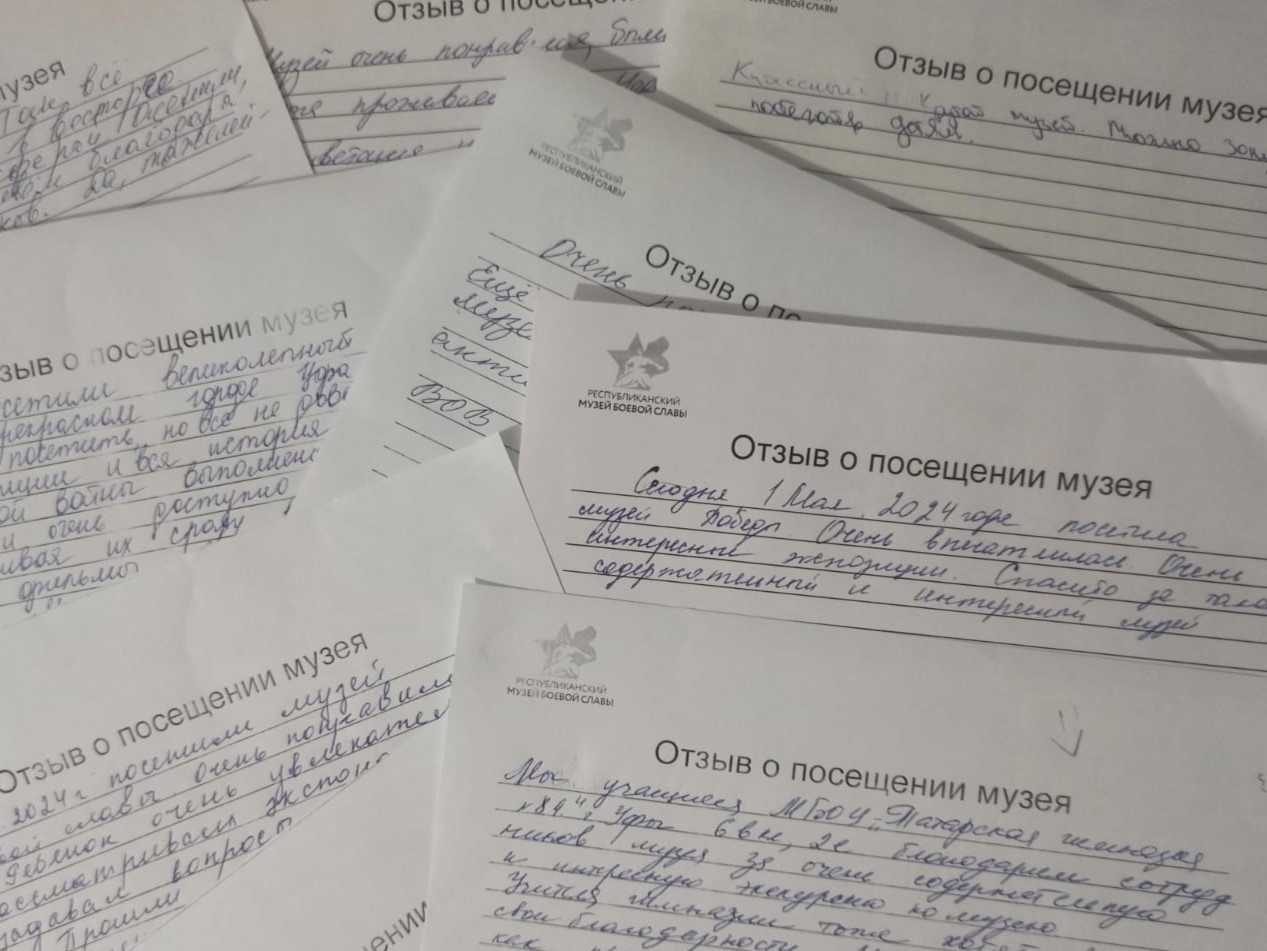 музея
Там всё
в восторге
благодара
Отзыв о посещении
Музей очень понрав-
проживае
МУЗЕЙ БОЕВОЙ СЛАВЫ
Отзыв о посещении музея
Классный !! Крутой музей. Можно
РЕСПУБЛИКАНСКИЙ
МУЗЕЙ БОЕВОЙ СЛАВЫ
Отзыв о по
Очень
Ещё
музе
ВОВ
зыв о посещении музея
сетили великолепный
рекрасном городе Уфа
посетить, но всё не
иции и вся история
ой войны выполнена
и очень доступно
ивая их сразу
фильмы
РЕСПУБЛИКАНСКИЙ
МУЗЕЙ БОЕВОЙ СЛАВЫ
Отзыв о посещении музея
Сегодня 1 Мая 2024 года посетила
музей Победы. Очень впечатлилась. Очень
интересные экспозиции. Спасибо за тако
содержательный и интересный музей
Отзыв о посещении музея
2024 г посетили музей
славы очень понравил
Ребенок очень увлекател
ассматривал экспон
задавал вопросы
Прошли
щении
РЕСПУБЛИКАНСКИЙ
МУЗЕЙ БОЕВОЙ СЛАВЫ
Отзыв о посещении музея
Мы учащиеся МБОУ "Татарская гимназия
№84" г Уфы 6в кл, 2е благодарим сотруд
ников музея за очень содержательную
и интересную экскурсию по музею
Учителя гимназии тоже
свои благодарности
как